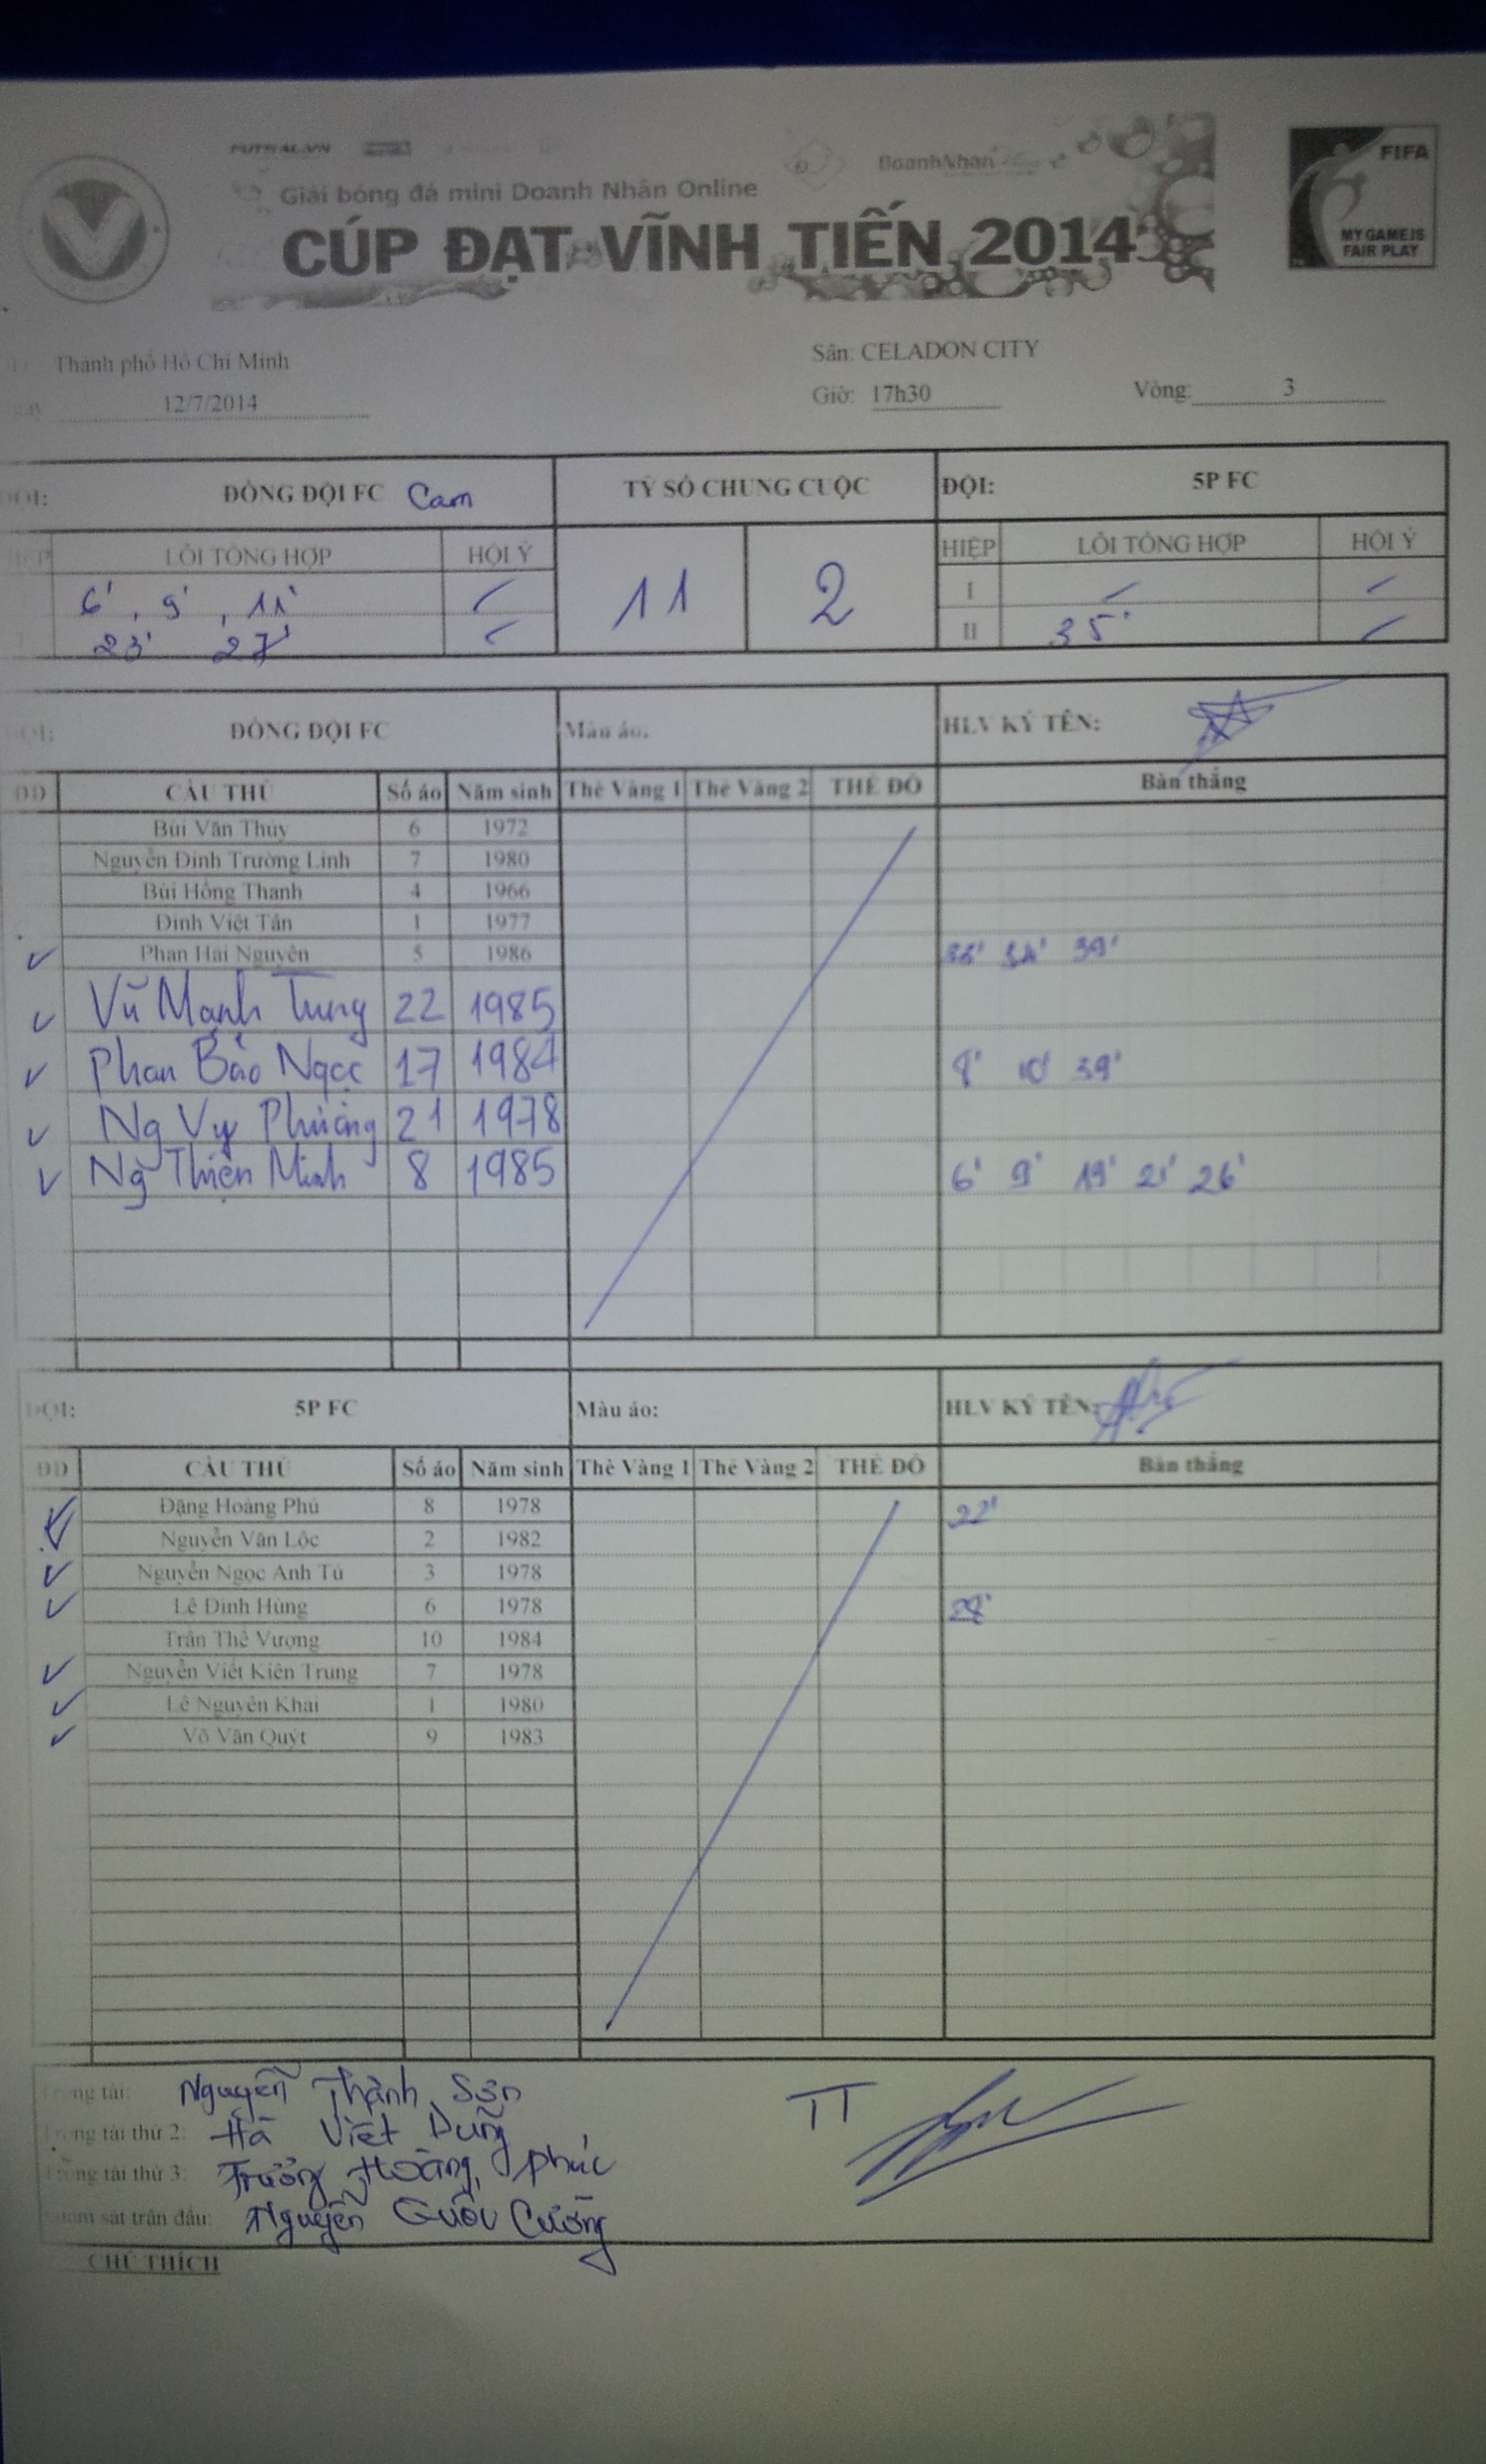 FUTSAL.VN
DoanhNhan
Giải bóng đá mini Doanh Nhân Online
CÚP ĐẠT VĨNH TIẾN 2014
FIFA
MY GAME IS
FAIR PLAY
Thành phố Hồ Chí Minh
Sân: CELADON CITY
12/7/2014
Giờ: 17h30
Vòng: 3
ĐỒNG ĐỘI FC Cam
TỶ SỐ CHUNG CUỘC
ĐỘI: 5P FC
LỖI TỔNG HỢP HỘI Ý
11 2
HIỆP LỖI TỔNG HỢP HỘI Ý
6' , 9' , 11'
I
23' 27'
II 35'
ĐỒNG ĐỘI FC Màu áo: HLV KÝ TÊN:
DD CẦU THỦ Số áo Năm sinh Thẻ Vàng 1 Thẻ Vàng 2 THẺ ĐỎ Bàn thắng
Bùi Văn Thủy 6 1972
Nguyễn Đình Trường Linh 7 1980
Bùi Hồng Thanh 4 1966
Đinh Việt Tân 1 1977
Phan Hai Nguyên 5 1986 39'
Vũ Mạnh Tung 22 1985
Phan Bảo Ngọc 17 1984 8' 10' 39'
Ng Vy Phương 21 1978
Ng Thiện Minh 8 1985 6' 9' 19' 21' 26'
ĐỘI: 5P FC Màu áo: HLV KÝ TÊN:
DD CẦU THỦ Số áo Năm sinh Thẻ Vàng 1 Thẻ Vàng 2 THẺ ĐỎ Bàn thắng
Đặng Hoàng Phú 8 1978 22'
Nguyễn Văn Lộc 2 1982
Nguyễn Ngọc Anh Tú 3 1978
Lê Đình Hùng 6 1978
Trần Thế Vượng 10 1984
Nguyễn Viết Kiên Trung 7 1978
Lê Nguyên Khai 1 1980
Võ Văn Quýt 9 1983
Trọng tài: Nguyễn Thành Sơn TT
Trọng tài thứ 2: Hà Việt Dũng
Trọng tài thứ 3: Trương Hoàng Phúc
sát trận đấu: Nguyễn Quốc Cường
CHÚ THÍCH